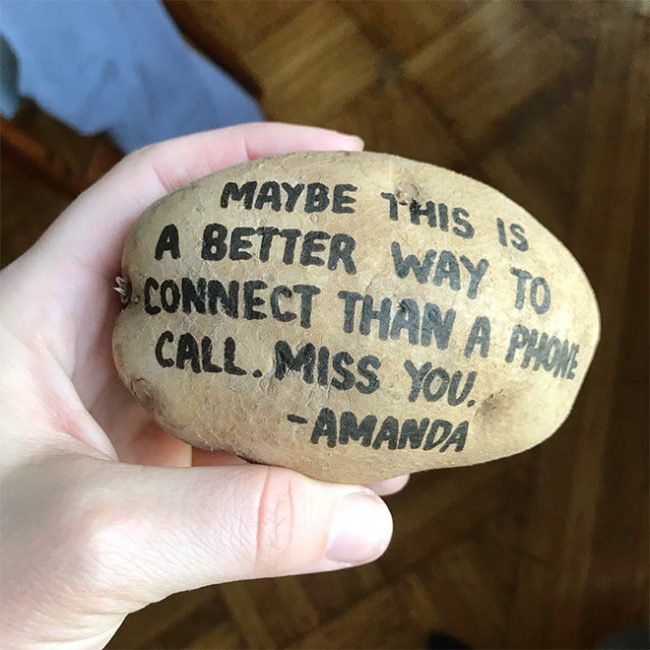 MAYBE THIS IS
A BETTER WAY TO
CONNECT THAN A PHONE
CALL. MISS YOU.
-AMANDA